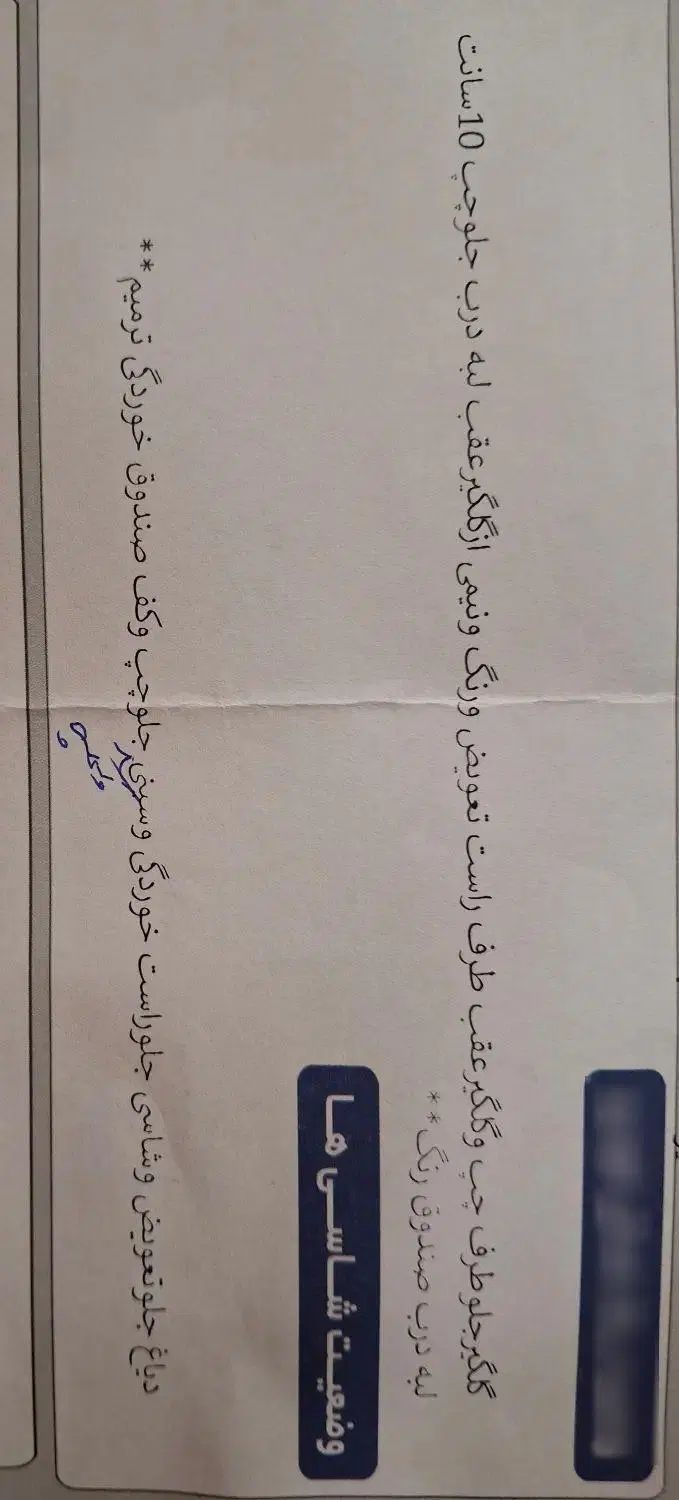 گلگیرجلوطرف چپ وگلگیرعقب طرف راست تعویض ورنگ ونیمی ازگلگیرعقب لبه درب جلوچپ 10سانت
لبه درب صندوق رنگ**
وضعیت شاسی ها
دیاغ جلوتعویض وشاسی جلوراست خوردگی وسینی جلوچپ وکف صندوق خوردگی ترمیم**